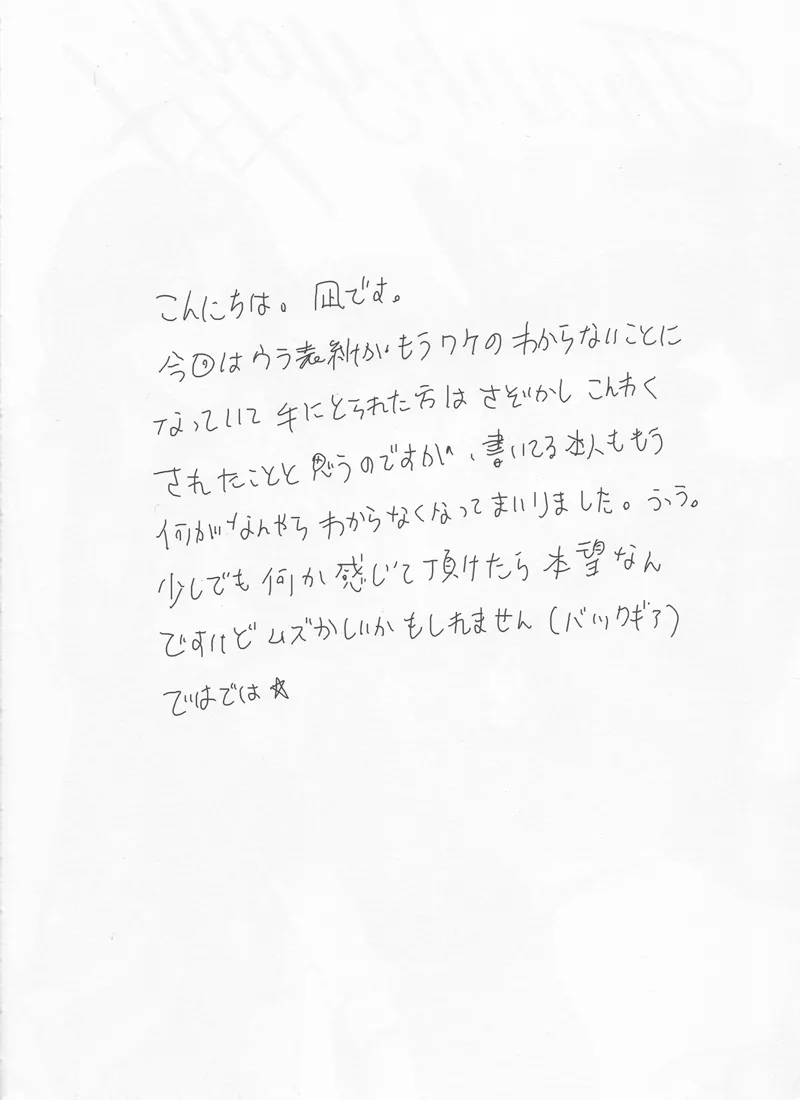 こんにちは。凪です。
今回はウラ表紙がもうワケのわからないことに
なっていて手にとられた方はさぞかしこんわく
されたことと思うのですが、書いてる本人ももう
何がなんやらわからなくなってまいりました。うっう。
少しでも何か感じて頂けたら本望なん
ですけどムズかしいかもしれません(バックギア)
ではでは☆
Thank you!